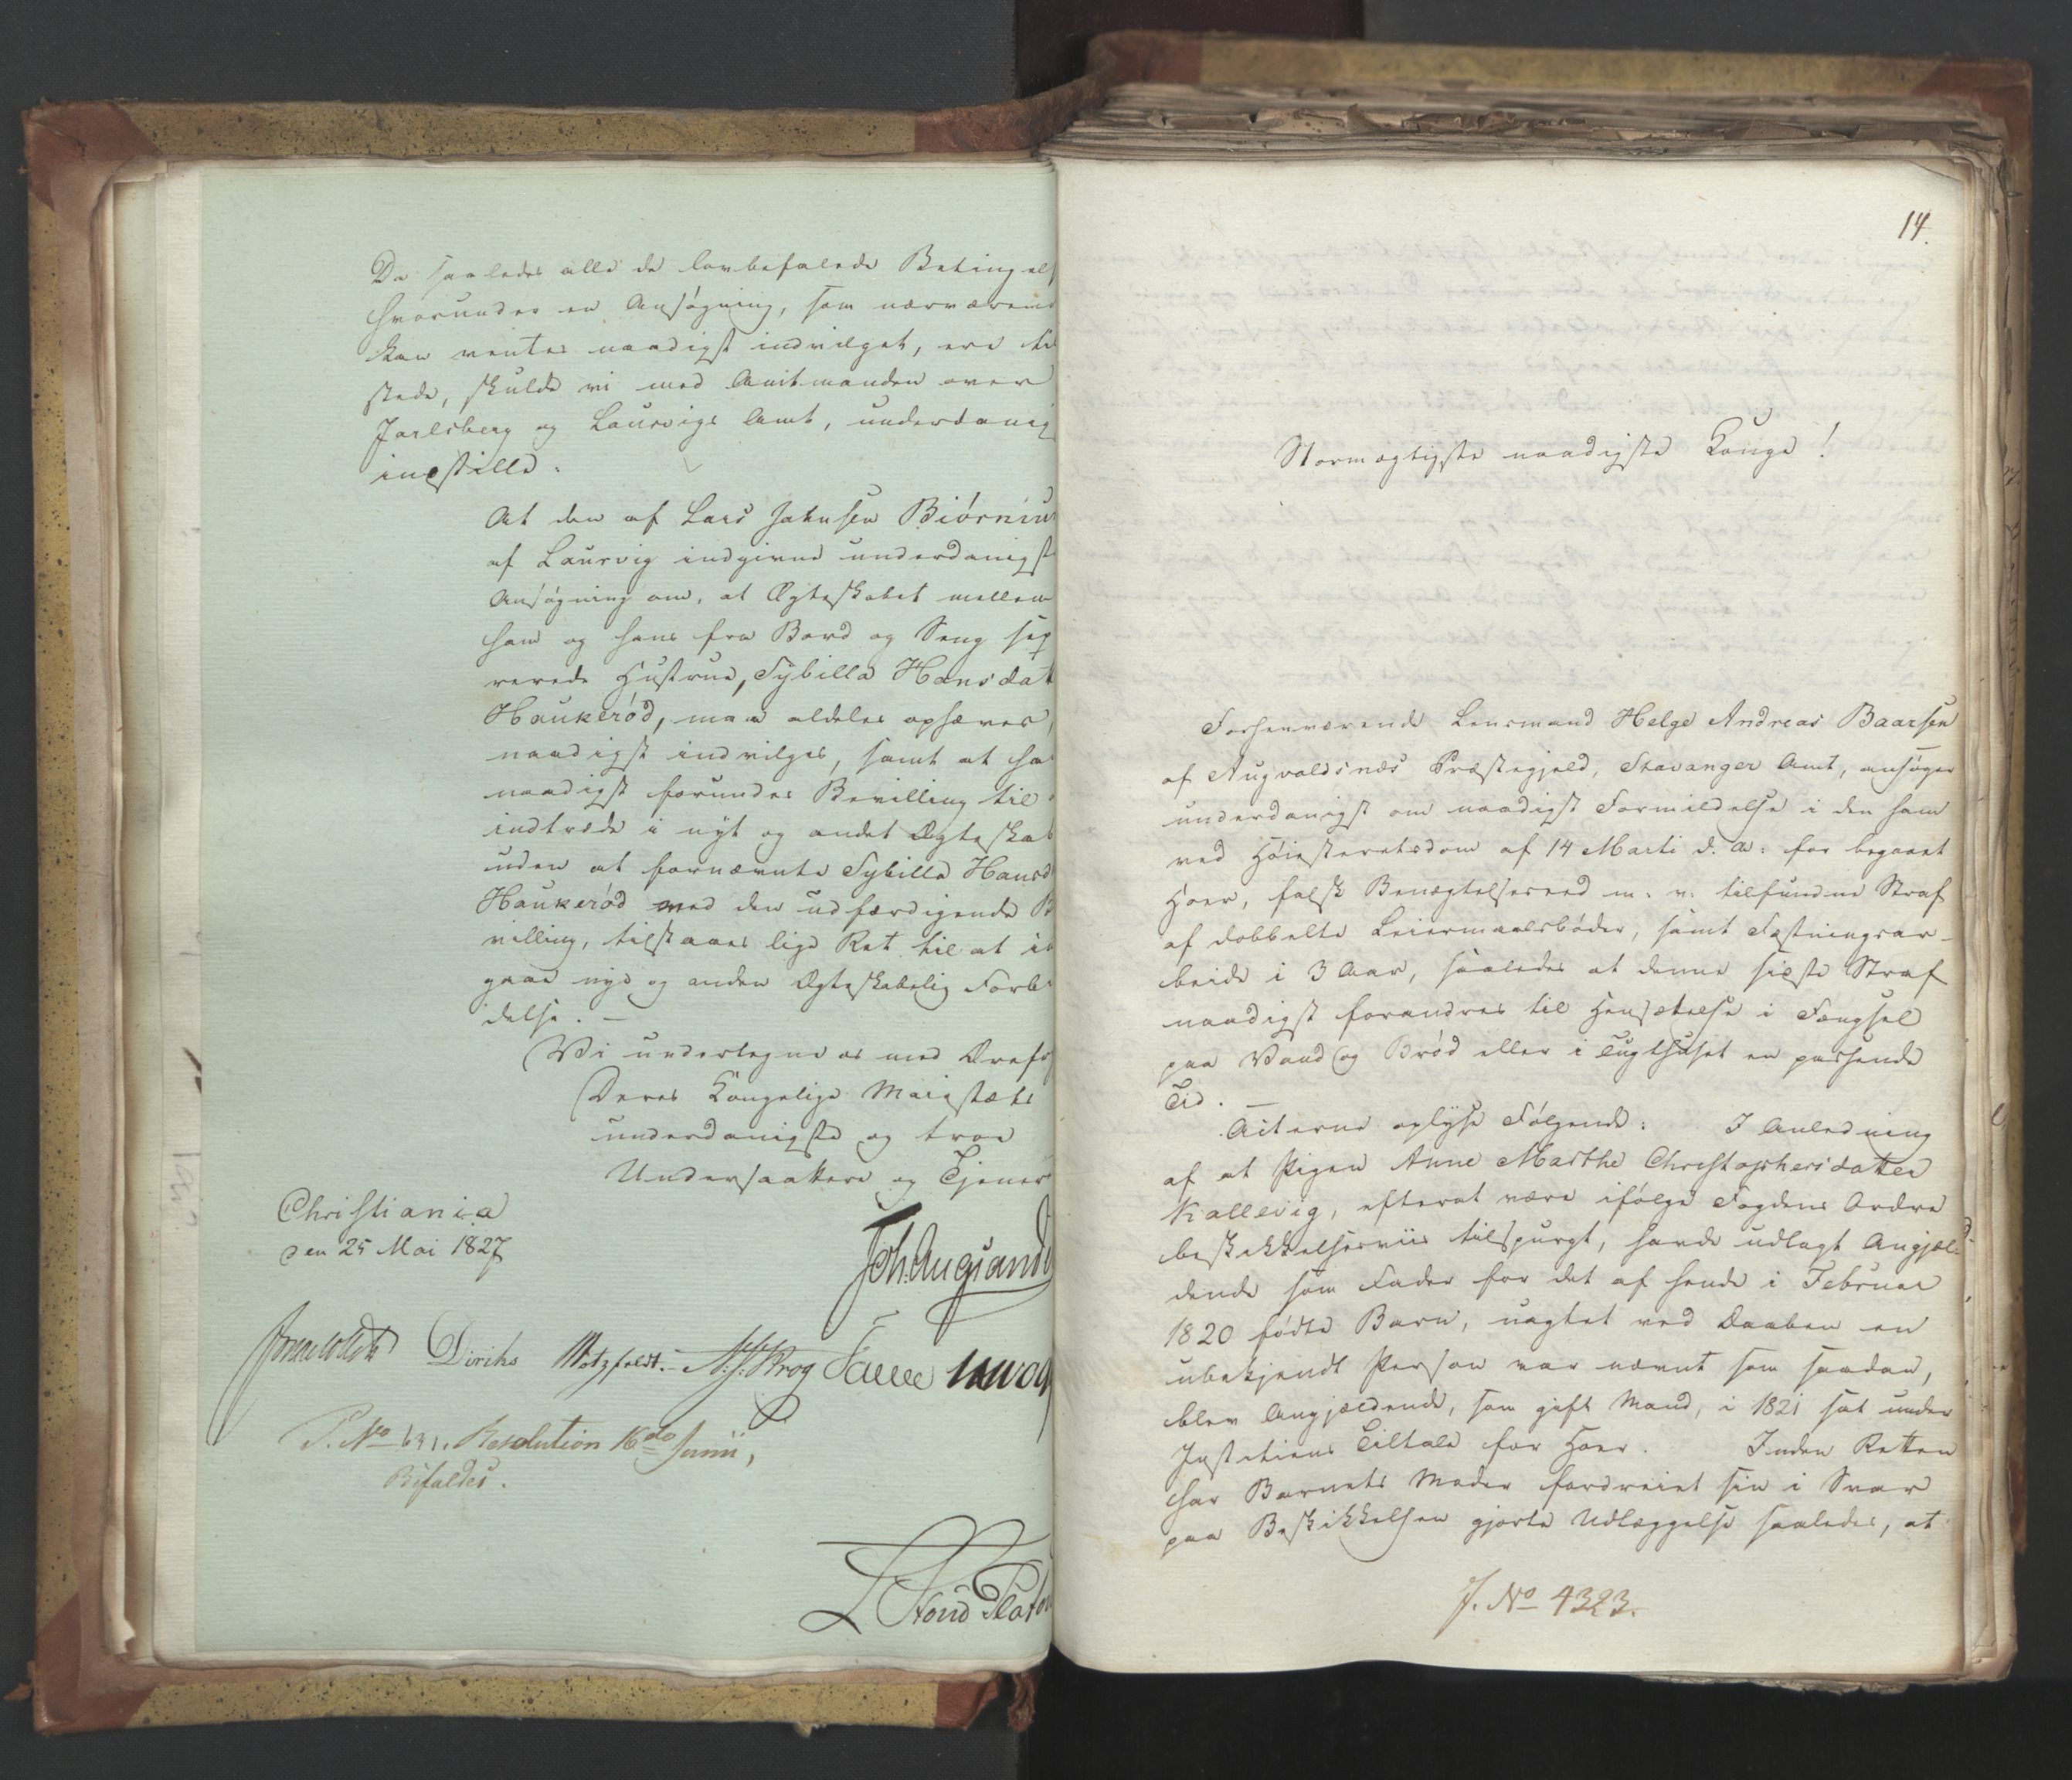 Da saaledes alle de lovbefalede Betingels
hvorunder en Ansøgning, som nærværend
kan ventes naadigst indvilget, ere til
stede, skulde vi med Amtmanden over
Jarlsberg og Laurvigs Amt, underdanig
indstille:
At den af Lars Johnsen Biörnnu
af Laurvig indgivne underdanigst
Ansøgning om, at Ægteskabet mellem
ham og hans fra Bord og Seng sepa
rerede Hustrue, Sybilla Hansdat
Haukeröd, maa aldeles ophæves,
naadigst indvilges, samt at ha
naadigst forundes Bevilling til
indtræde i nyt og andet Ægteskab
uden at fornævnte Sybilla Hansd
Haukeröd ved den udfærdigende B
villing, tilstaaes lige Ret til at i
gaae nye og anden Ægteskabelig Forb
delse. —
Vi undertegne os med Ærefr
Deres Kongelige Majestæts
underdanigste og troe
Undersaatter og Tjener
Christiania
den 25 Mai 1827
Diriks Motzfeldt. Krog
P. No 631. Resolution 16de Junii,
Bifaldes.
14.
Stormægtigste naadigste Konge!
Forhenværende Lensmand Helge Andreas Baarsen
af Augvaldsnæs Præstegjeld, Stavanger Amt, ansøger
underdanigst om naadigst Formildelse i den ham
ved Høiesteretsdom af 14 Marti d. A: for begaaet
Hoer, falsk Benægtelseseed m: v: tilfundne Straf
af dobbelte Leiermaalsbøder, samt Fæstningsar-
beide i 3 Aar, saaledes at denne sidste Straf
naadigst forandres til Hensættelse i Fængsel
paa Vand og Brød eller i Tugthuset en passende
Tid. —
Acterne oplyse Følgende: I Anledning
af at Pigen Anne Marthe Christophersdatter
Kallevig, efterat være ifølge Fogdens Ordre
beskikkelsesviis tilspurgt, havde udlagt Angjæl-
dende som Fader for det af hende i Februar
1820 fødte Barn, uagtet ved Daaben en
ubekjendt Person var nævnt som saadan,
blev Angjældende, som gift Mand, i 1821 sat under
Justitiens Tiltale for Hoer. Inden Retten
har Barnets Moder fordreiet sin i Svar
paa Beskikkelsen gjorte Udlæggelse saaledes, at
J. No 4323.